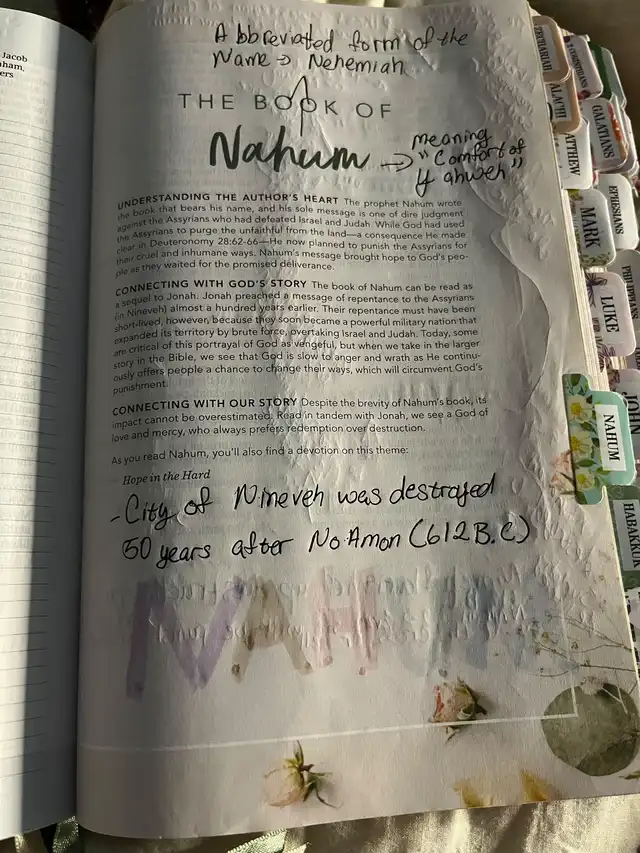 Jacob
aham,
ers
Abbreviated form of the
Name → Nehemiah
THE BOOK OF
Nahum → meaning
"Comfort of
Yahweh"
UNDERSTANDING THE AUTHOR'S HEART The prophet Nahum wrote
the book that bears his name, and his sole message is one of dire judgment
against the Assyrians who had defeated Israel and Judah. While God had used
the Assyrians to purge the unfaithful from the land—a consequence He made
clear in Deuteronomy 28:62-66—He now planned to punish the Assyrians for
their cruel and inhumane ways. Nahum's message brought hope to God's peo-
ple as they waited for the promised deliverance.
CONNECTING WITH GOD'S STORY The book of Nahum can be read as
a sequel to Jonah. Jonah preached a message of repentance to the Assyrians
(in Nineveh) almost a hundred years earlier. Their repentance must have been
short-lived, however, because they soon became a powerful military nation that
expanded its territory by brute force, overtaking Israel and Judah. Today, some
are critical of this portrayal of God as vengeful, but when we take in the larger
story in the Bible, we see that God is slow to anger and wrath as He continu-
ously offers people a chance to change their ways, which will circumvent God's
punishment.
CONNECTING WITH OUR STORY Despite the brevity of Nahum's book, its
impact cannot be overestimated. Read in tandem with Jonah, we see a God of
love and mercy, who always prefers redemption over destruction.
As you read Nahum, you'll also find a devotion on this theme:
Hope in the Hard
- City of Nineveh was destroyed
50 years after No Amon (612 B.C)
NAHUM
ZECHARIAH
MALACHI
MATTHEW
MARK
LUKE
JOHN
NAHUM
HABAKKUK
GALATIANS
EPHESIANS